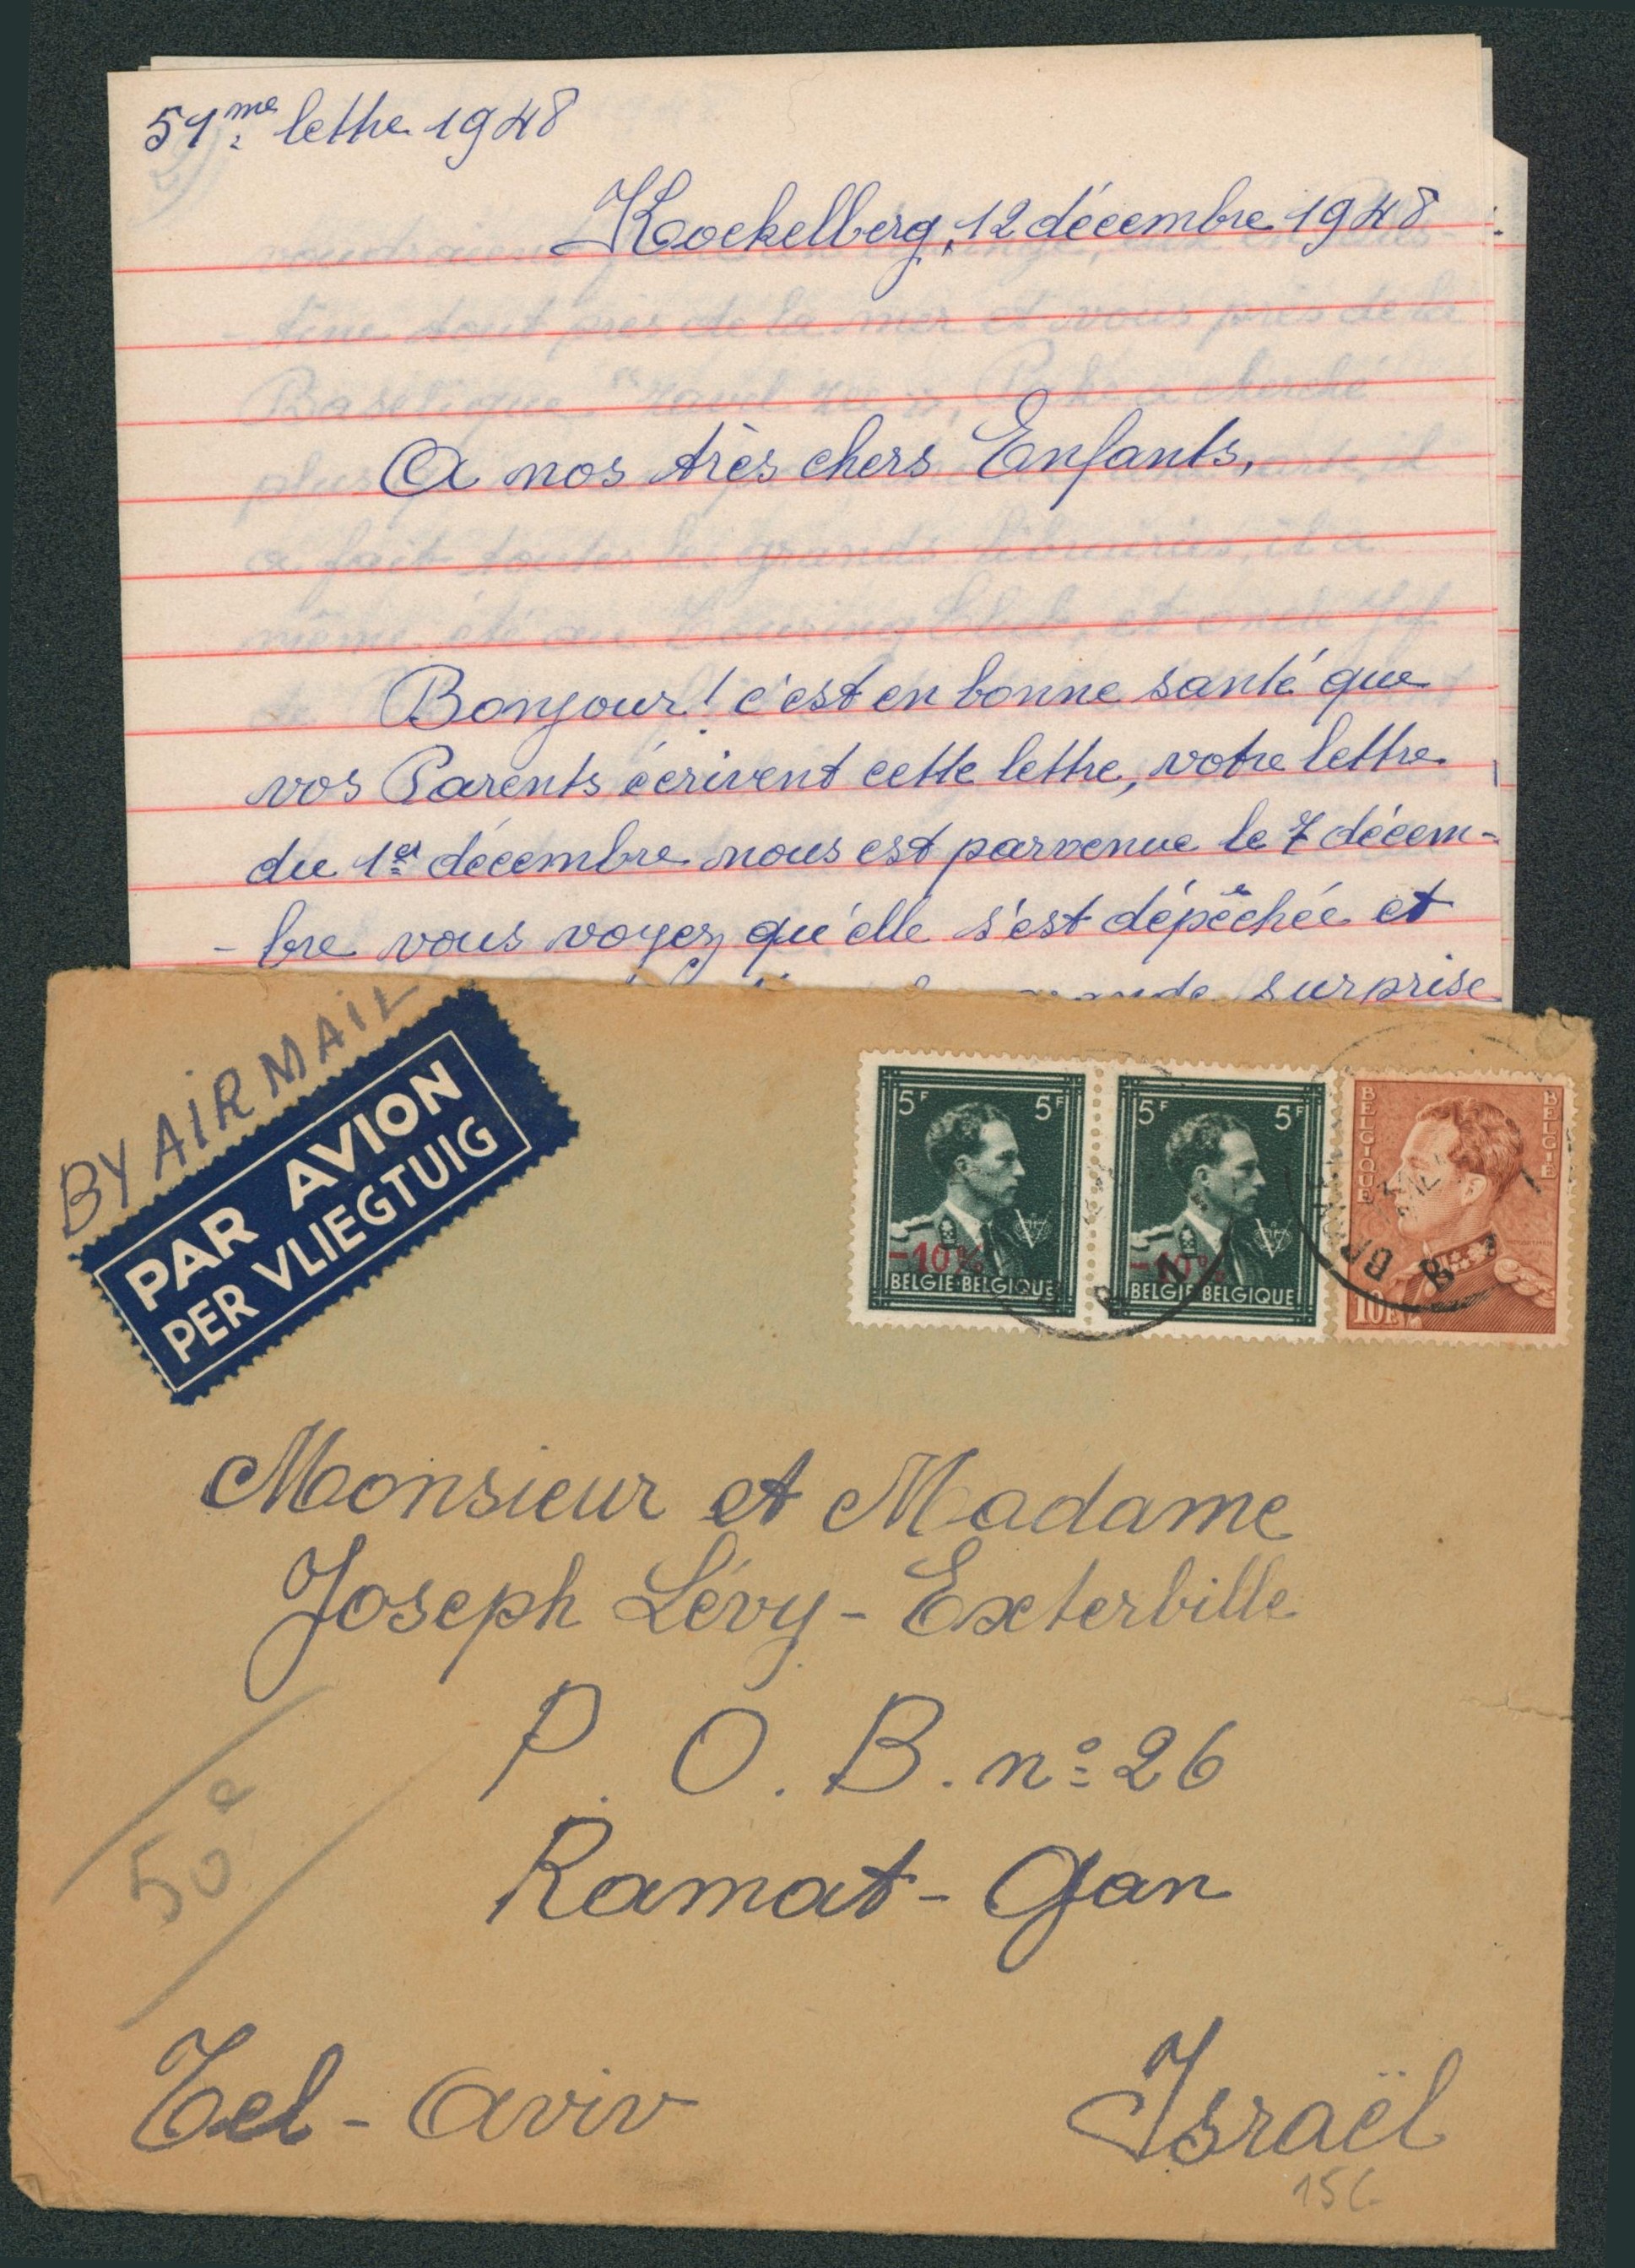 51me lettre 1948
Koekelberg, 12 décembre 1948
A nos très chers Enfants,
Bonjour! c'est en bonne santé que
vos Parents écrivent cette lettre, votre lettre
du 1er décembre nous est parvenue le 7 décem-
- bre vous voyez qu'elle s'est dépêchée et
grande surprise
BY AIR MAIL
PAR AVION
PER VLIEGTUIG
5F 5F
-10%
BELGIE-BELGIQUE
5F 5F
-10%
BELGIE-BELGIQUE
BELGIQUE BELGIË
10F
Monsieur et Madame
Joseph Lévy - Exterbille
P. O. B. no 26
Ramat - Gan
50e
Tel - Aviv Israël